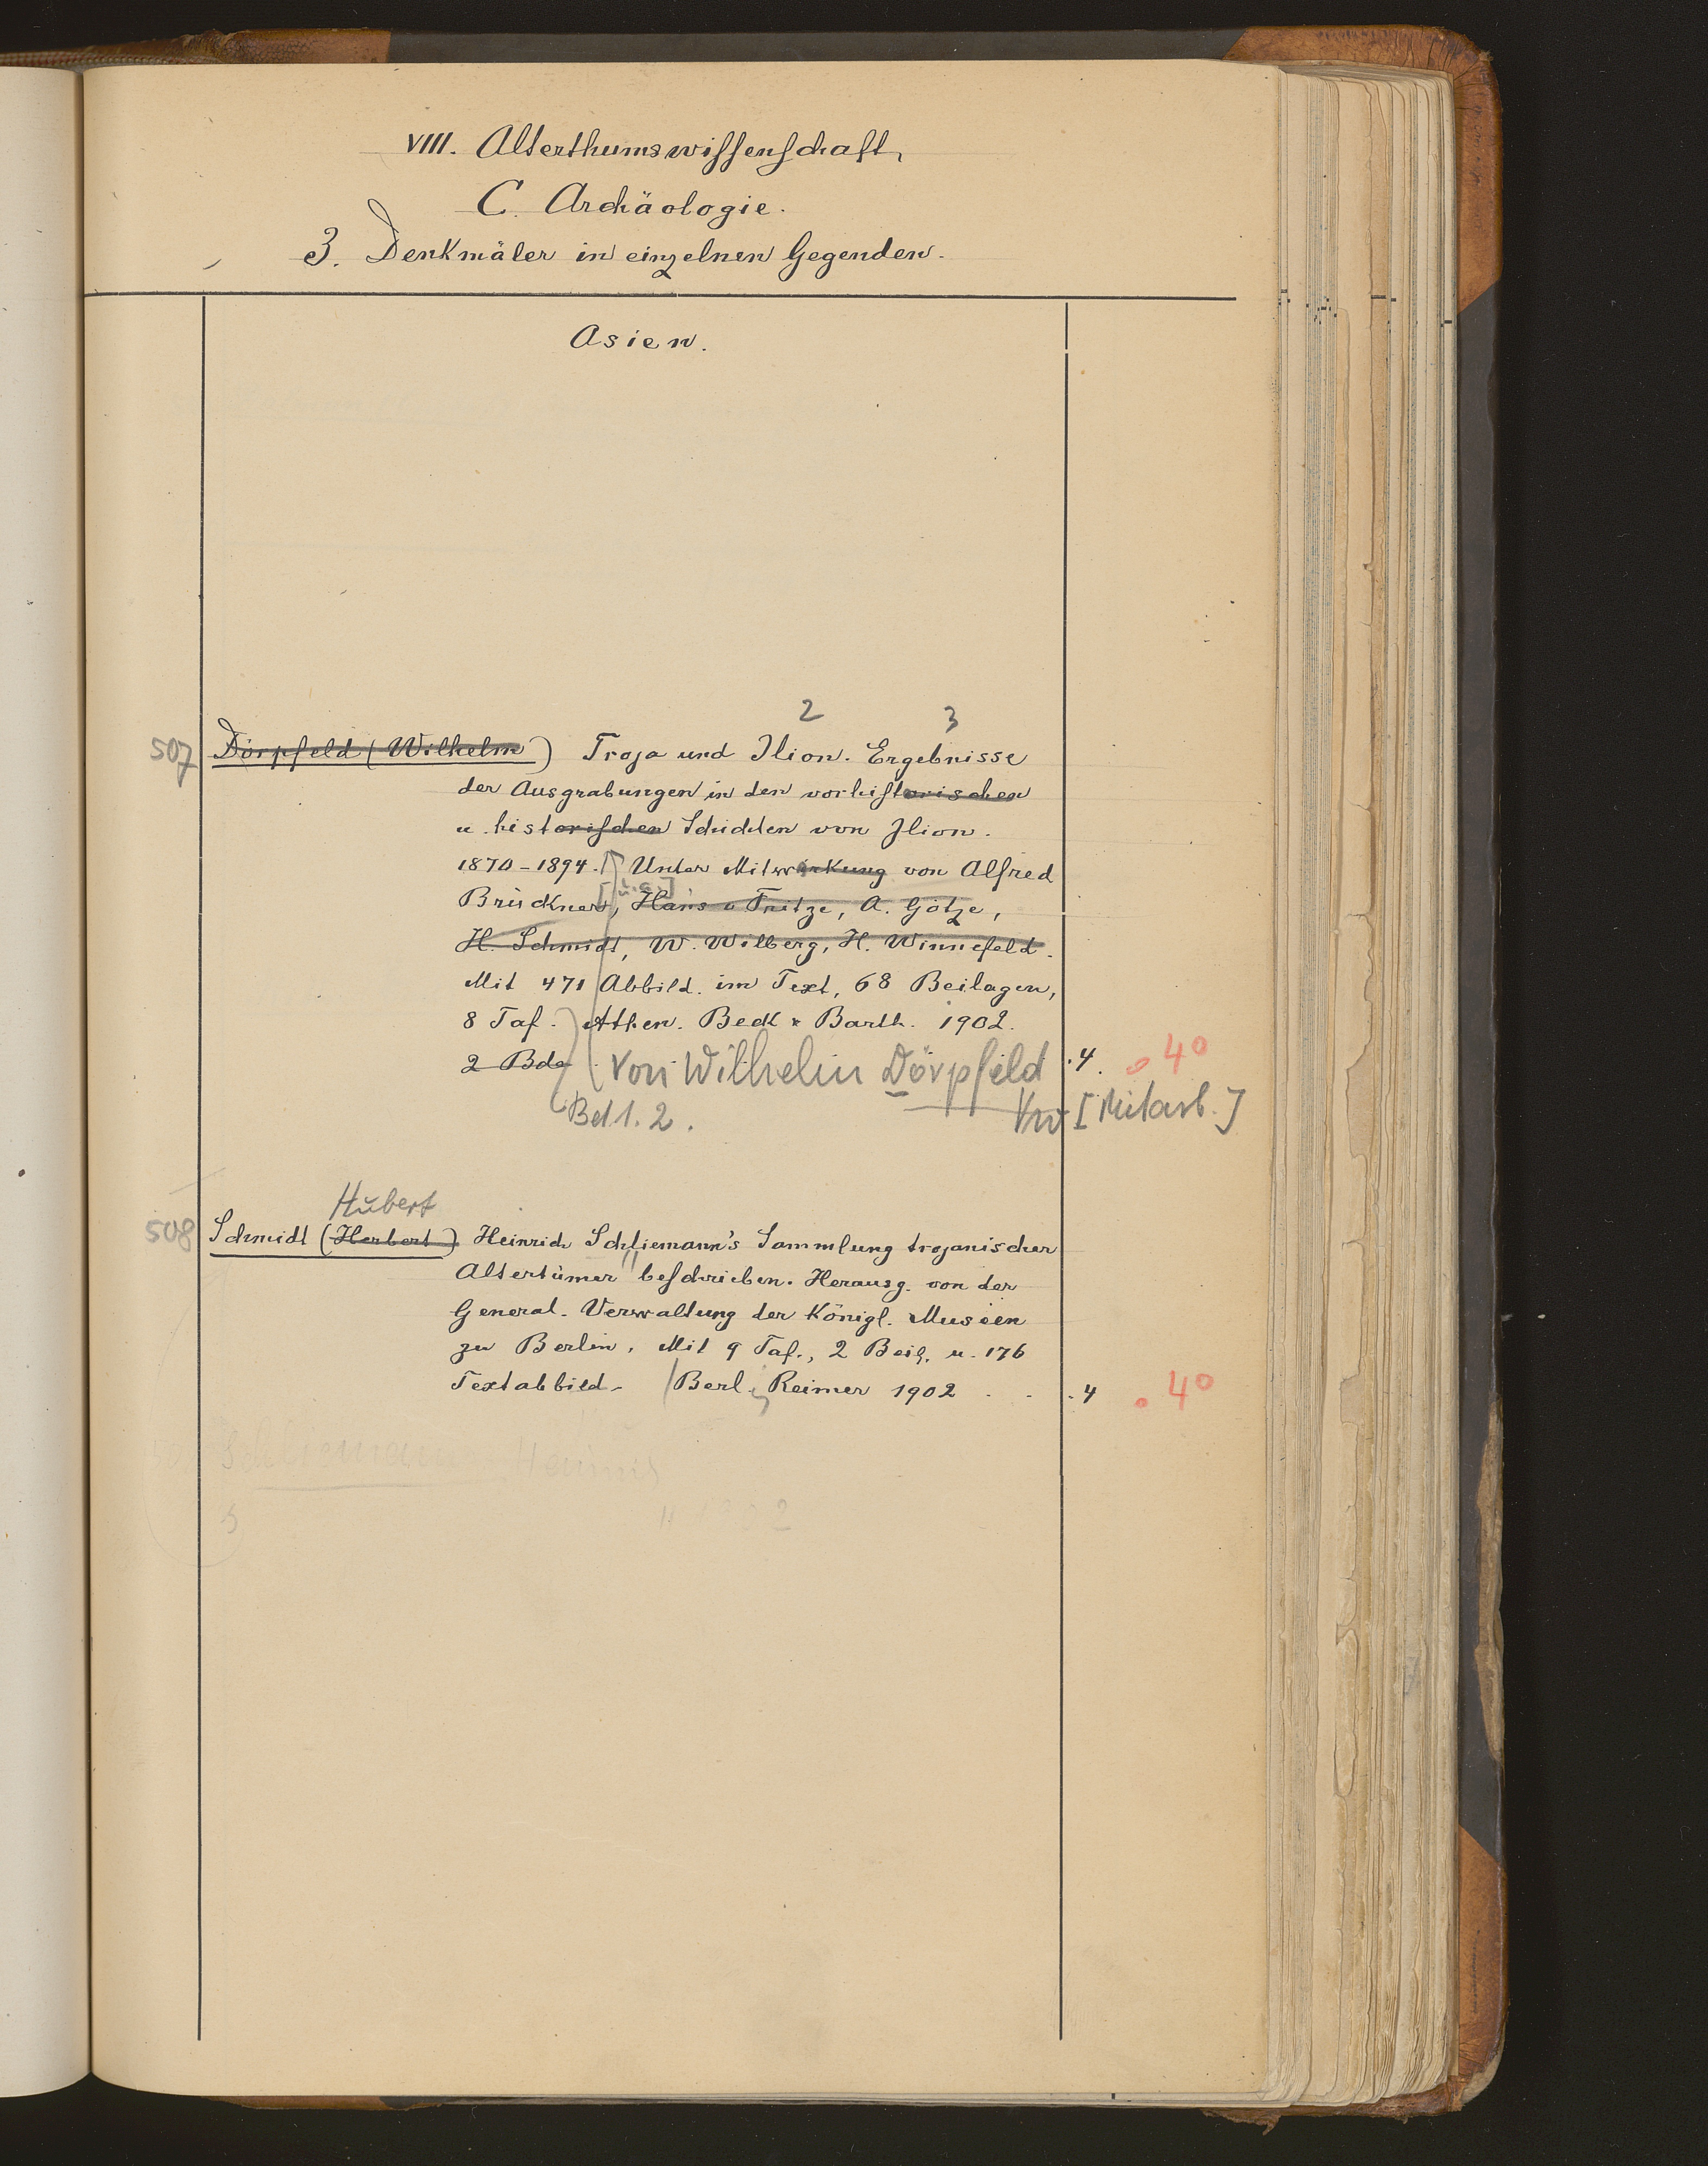 VIII. Alterthumswissenschaft,
C. Archäologie.
3. Denkmäler in einzelnen Gegenden.
Asien.
2 3
507 Dörpfeld (Wilhelm) Troja und Ilion. Ergebnisse
der Ausgrabungen in den vorhistorischen
u. historischen Schichten von Ilion.
1870-1894. Unter Mitwirkung von Alfred
[u.a.]
Brückner, Hans v Fritze, A. Götze,
H. Schmidt, W. Wilberg, H. Winnefeld.
Mit 471 Abbild. im Text, 68 Beilagen,
8 Taf. Athen. Beck & Barth. 1902.
2 Bde Von Wilhelm Dörpfeld .4. 4°
Bd 1. 2. Vw [Mitarb.]
Hubert
508 Schmidt (Herbert) Heinrich Schliemann's Sammlung trojanischer
Altertümer beschrieben. Herausg. von der
General-Verwaltung der Königl. Museen
zu Berlin. Mit 9 Taf., 2 Beil. u. 176
Textabbild. Berl. Reimer 1902 . . .4 4°
Schliemann Heinrich